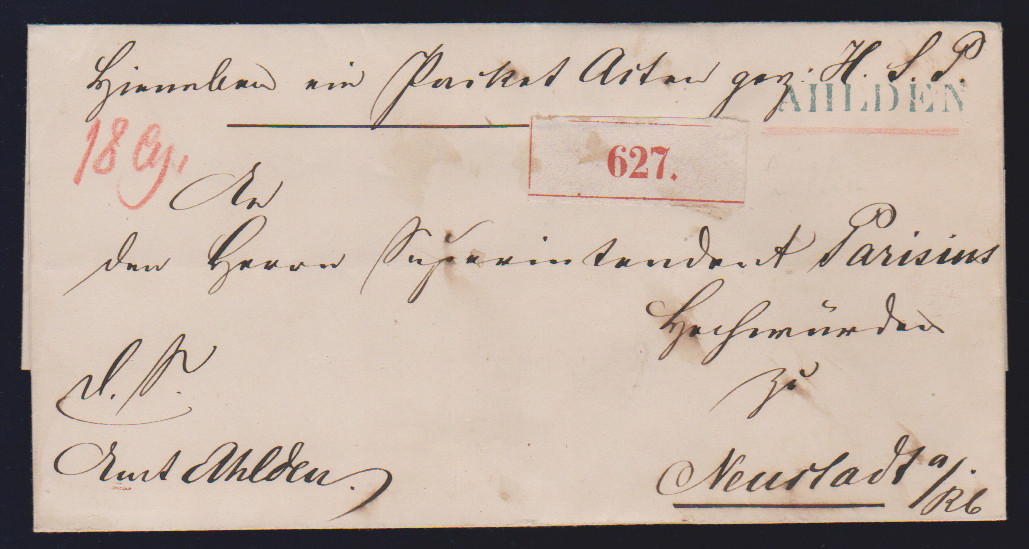 Hieneben ein Packet Acten gez. H. S. P.
AHLDEN
18 Lg.
627.
An
den Herrn Superintendent Parisius
Hochwürden
zu
D. S.
Amt Ahlden.
Neustadt a/
Rb